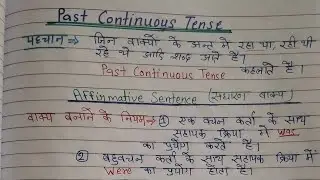 Past Continuous Tense
पहचान ⇒ जिन वाक्यों के अन्त में रहा था, रही थी
रहे थे आदि शब्द आते हैं।
Past Continuous Tense कहलाते हैं।
Affirmative Sentence (साधारण वाक्य)
वाक्य बनाने के नियम ⇒ ① एक वचन कर्ता के साथ
सहायक क्रिया में was
का प्रयोग करते हैं।
② बहुवचन कर्ता के साथ सहायक क्रिया में
Were का प्रयोग होता है।